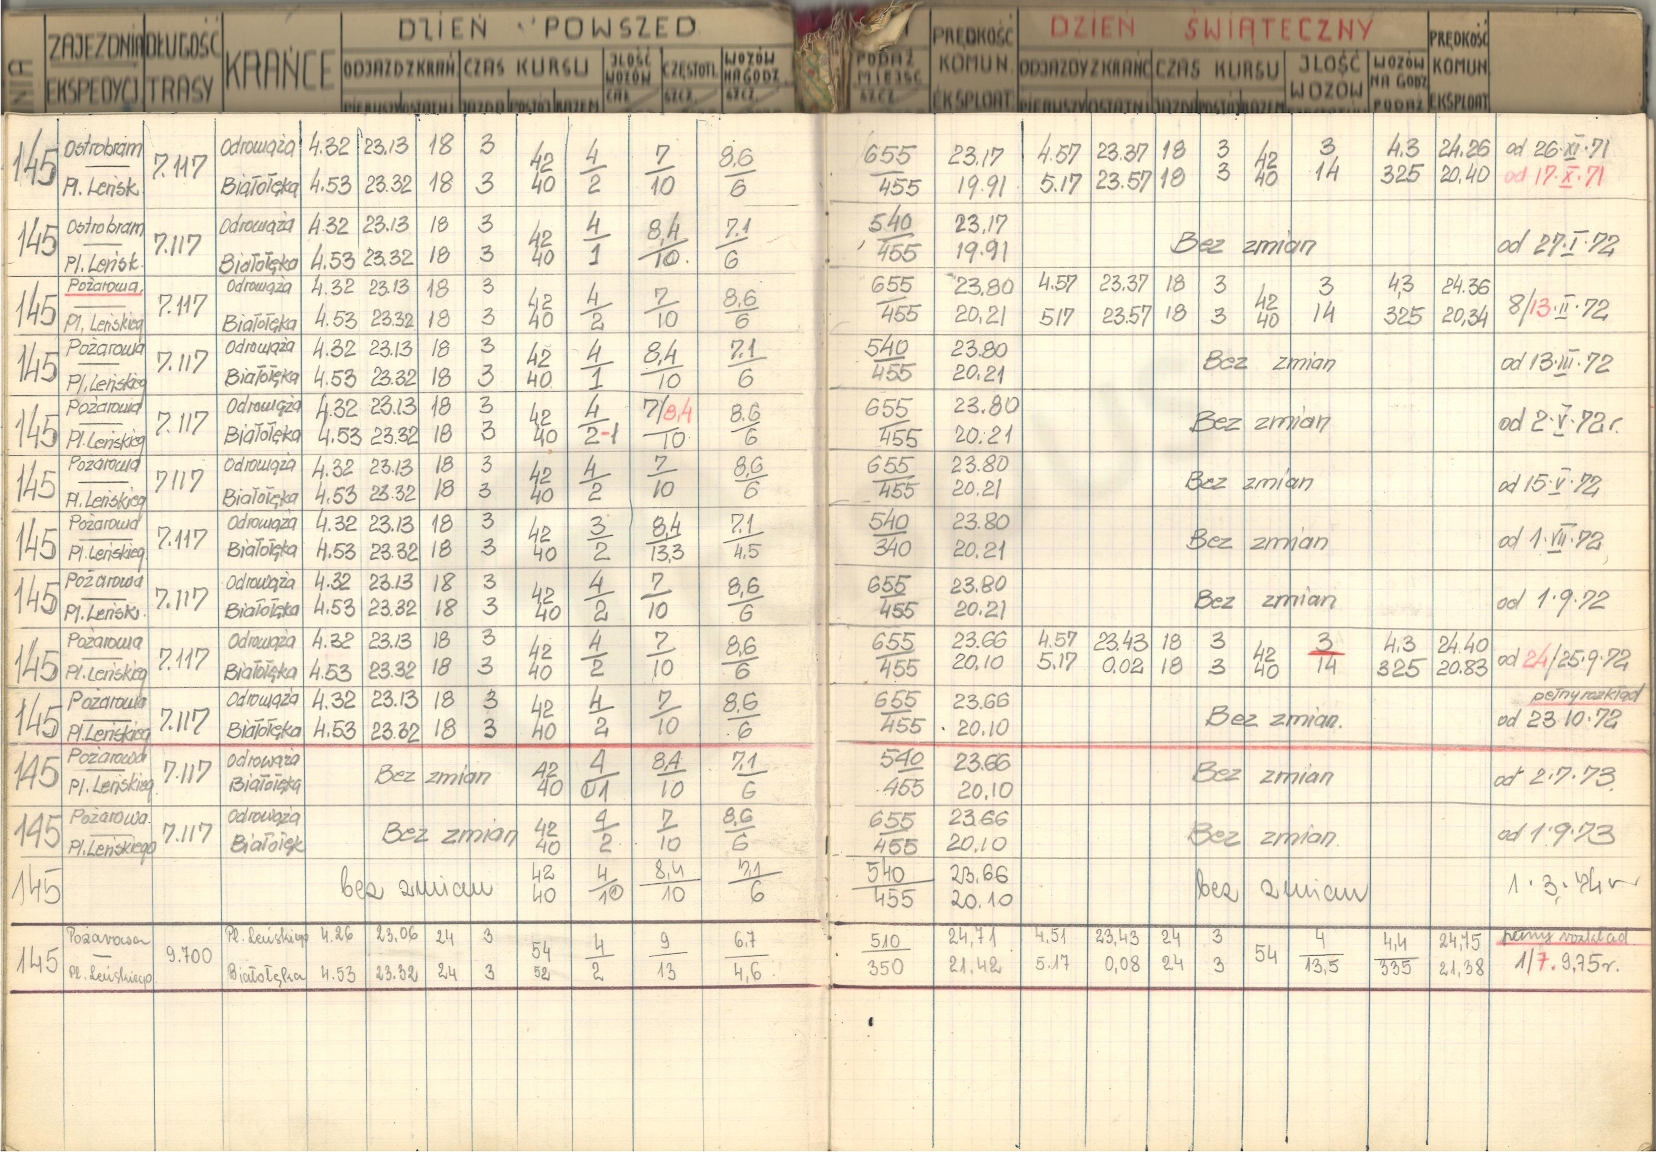 DZIEŃ POWSZED
DZIEŃ ŚWIĄTECZNY
ZAJEZDNIA DŁUGOŚĆ KRAŃCE ODJAZD Z KRAŃ CZAS KURSU JLOŚĆ WOZÓW CZĘSTOTL. WOZÓW NA GODZ. PODAŻ MIEJSC PRĘDKOŚĆ KOMUN. ODJAZDY Z KRAŃC CZAS KURSU JLOŚĆ WOZÓW WOZÓW NA GODZ PRĘDKOŚĆ KOMUN.
EKSPEDYCJ TRASY PIERWSZY OSTATNI JAZDA POSTÓJ RAZEM SZCZ. SZCZ. SZCZ. EKSPLOAT. PIERWSZY OSTATNI JAZDA POSTÓJ RAZEM PODAŻ EKSPLOAT
145 Ostrobram 7.117 Odrowąża 4.32 23.13 18 3 42 4 7 8,6 655 23.17 4.57 23.37 18 3 42 3 4,3 24.26 od 26·XI·71
Pl. Leńsk. Białołęka 4.53 23.32 18 3 40 2 10 6 455 19.91 5.17 23.57 18 3 40 14 325 20,40 od 17·X·71
145 Ostrobram 7.117 Odrowąża 4.32 23.13 18 3 42 4 8,4 7.1 540 23,17 Bez zmian od 27·I·72
Pl. Leńsk. Białołęka 4.53 23.32 18 3 40 1 10. 6 455 19.91
145 Pożarowa. 7.117 Odrowąża 4.32 23.13 18 3 42 4 7 8,6 655 23,80 4.57 23.37 18 3 42 3 4,3 24.36 8/13·II·72
Pl, Leńskieg Białołęka 4.53 23.32 18 3 40 2 10 6 455 20,21 517 23.57 18 3 40 14 325 20,34
145 Pożarowa 7.117 Odrowąża 4.32 23.13 18 3 42 4 8,4 7.1 540 23.80 Bez zmian od 13·III·72
Pl. Leńskieg Białołęka 4.53 23.32 18 3 40 1 10 6 455 20.21
145 Pożarowa 7.117 Odrowąża 4.32 23.13 18 3 42 4 7/8,4 8.6 655 23.80 Bez zmian od 2·V·72r.
Pl. Leńskieg Białołęka 4.53 23.32 18 3 40 2-1 10 6 455 20.21
145 Pożarowa 7117 Odrowąża 4.32 23.13 18 3 42 4 7 8,6 655 23.80 Bez zmian od 15·V·72
Pl. Leńskieg Białołęka 4.53 23.32 18 3 40 2 10 6 455 20.21
145 Pożarowa 7.117 Odrowąża 4.32 23.13 18 3 42 3 8,4 7.1 540 23.80 Bez zmian od 1·VII·72
Pl. Leńskieg Białołęka 4.53 23.32 18 3 40 2 13,3 4.5 340 20.21
145 Pożarowa 7.117 Odrowąża 4.32 23.13 18 3 42 4 7 8,6 655 23.80 Bez zmian od 1·9·72
Pl. Leński. Białołęka 4.53 23.32 18 3 40 2 10 6 455 20.21
145 Pożarowa 7.117 Odrowąża 4.32 23.13 18 3 42 4 7 8,6 655 23.66 4.57 23.43 18 3 42 3 4,3 24.40 od 24/25·9·72
Pl. Leńskieg Białołęka 4.53 23.32 18 3 40 2 10 6 455 20,10 5.17 0.02 18 3 40 14 325 20.83
145 Pożarowa 7.117 Odrowąża 4.32 23.13 18 3 42 4 7 8.6 655 23.66 Bez zmian. pełny rozkład
Pl. Leńskieg Białołęka 4.53 23.32 18 3 40 2 10 6 455 20.10 od 23 10·72
145 Pożarowa 7.117 Odrowąża Bez zmian 42 4 8,4 7,1 540 23.66 Bez zmian od 2·7·73.
Pl. Leńskieg Białołęka 40 1 10 6 455 20,10
145 Pożarowa. 7.117 Odrowąża Bez zmian 42 4 7 8,6 655 23.66 Bez zmian. od 1·9·73
Pl. Leńskiego Białołęk 40 2 10 6 455 20.10
145 bez zmian 42 4 8,4 7,1 540 23.66 bez zmian 1·3·74r
40 10 6 455 20.10
145 Pożarowa 9.700 Pl. Leńskiego 4.26 23,06 24 3 54 4 9 6,7 510 24,71 4.51 23,43 24 3 54 4 4,4 24,75 rozkład
Pl. Leńskiego Białołęka 4.53 23.32 24 3 52 2 13 4,6 350 21,42 5.17 0,08 24 3 13,5 335 21,38 1/7. 9,75r.